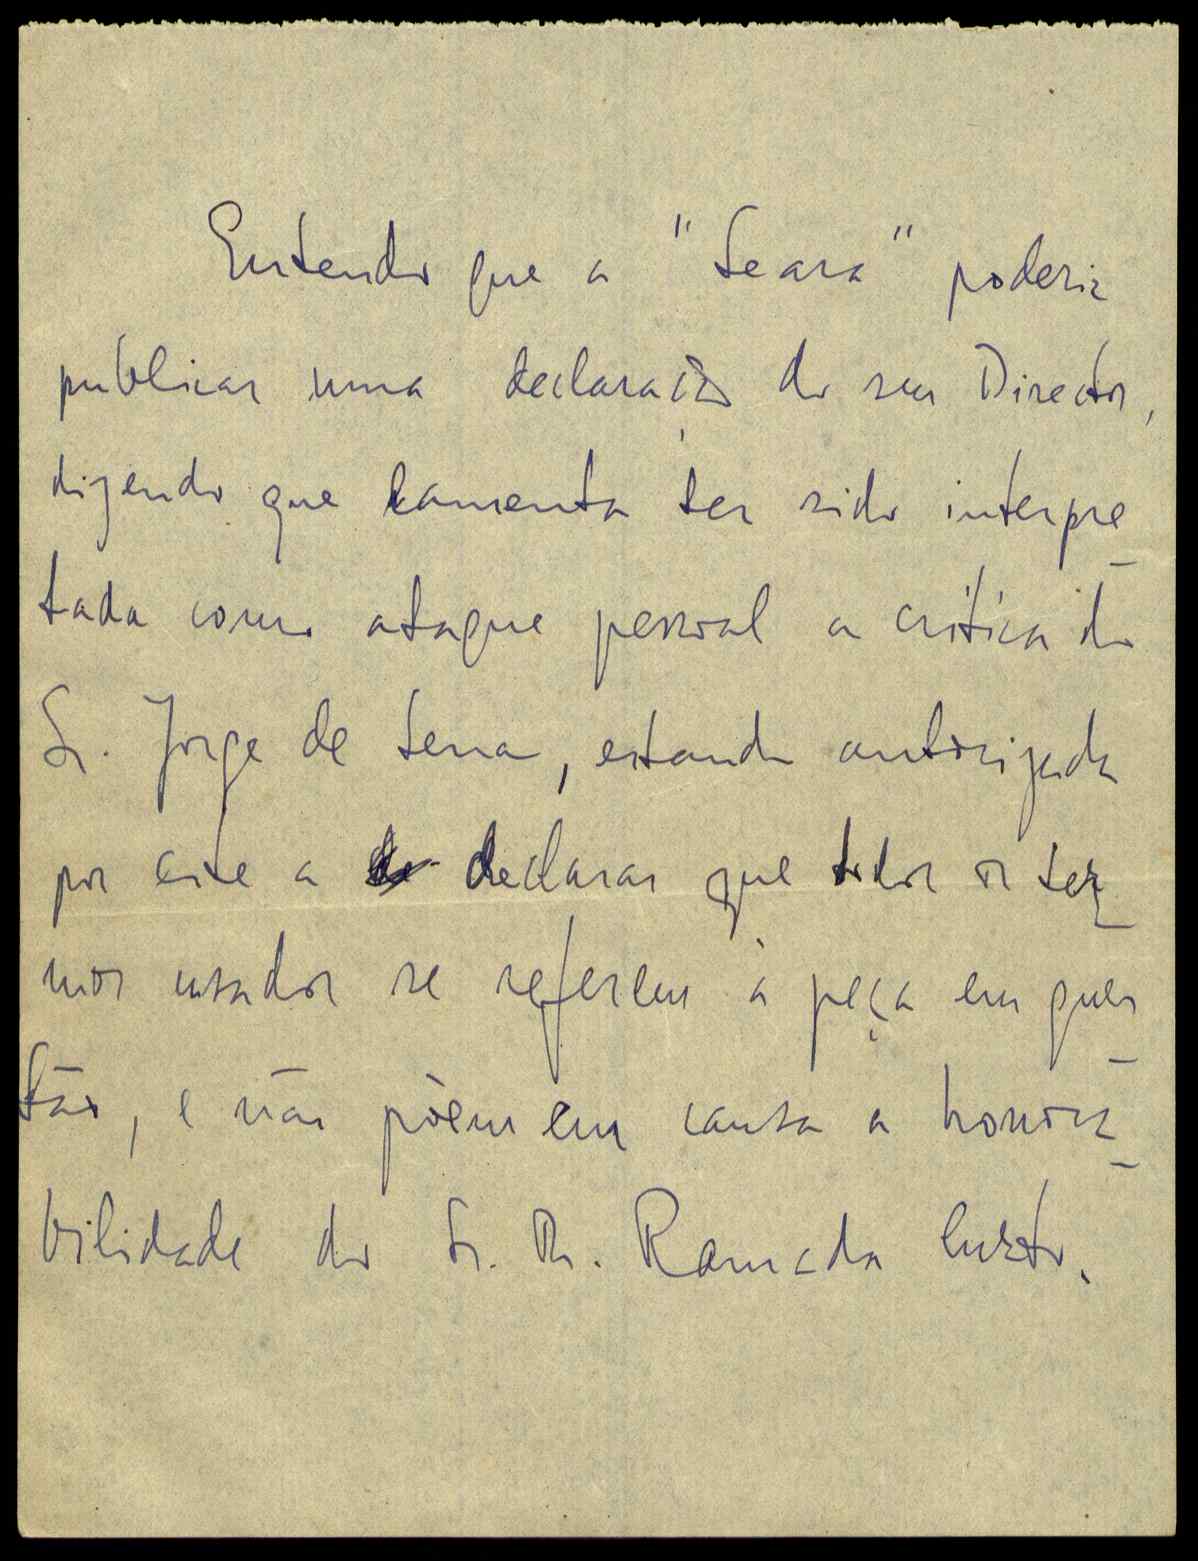 Entendo que a "Seara" poderia
publicar uma declaração do seu Director,
dizendo que lamenta ter sido interpre_
tada como ataque pessoal a crítica do
Sr. Jorge de Sena, estando autorizada
por este a declarar que todos os ter_
mos usados se referem à peça em ques_
tão, e não põem em causa a honora_
bilidade do Sr. Dr. Ramada Curto.